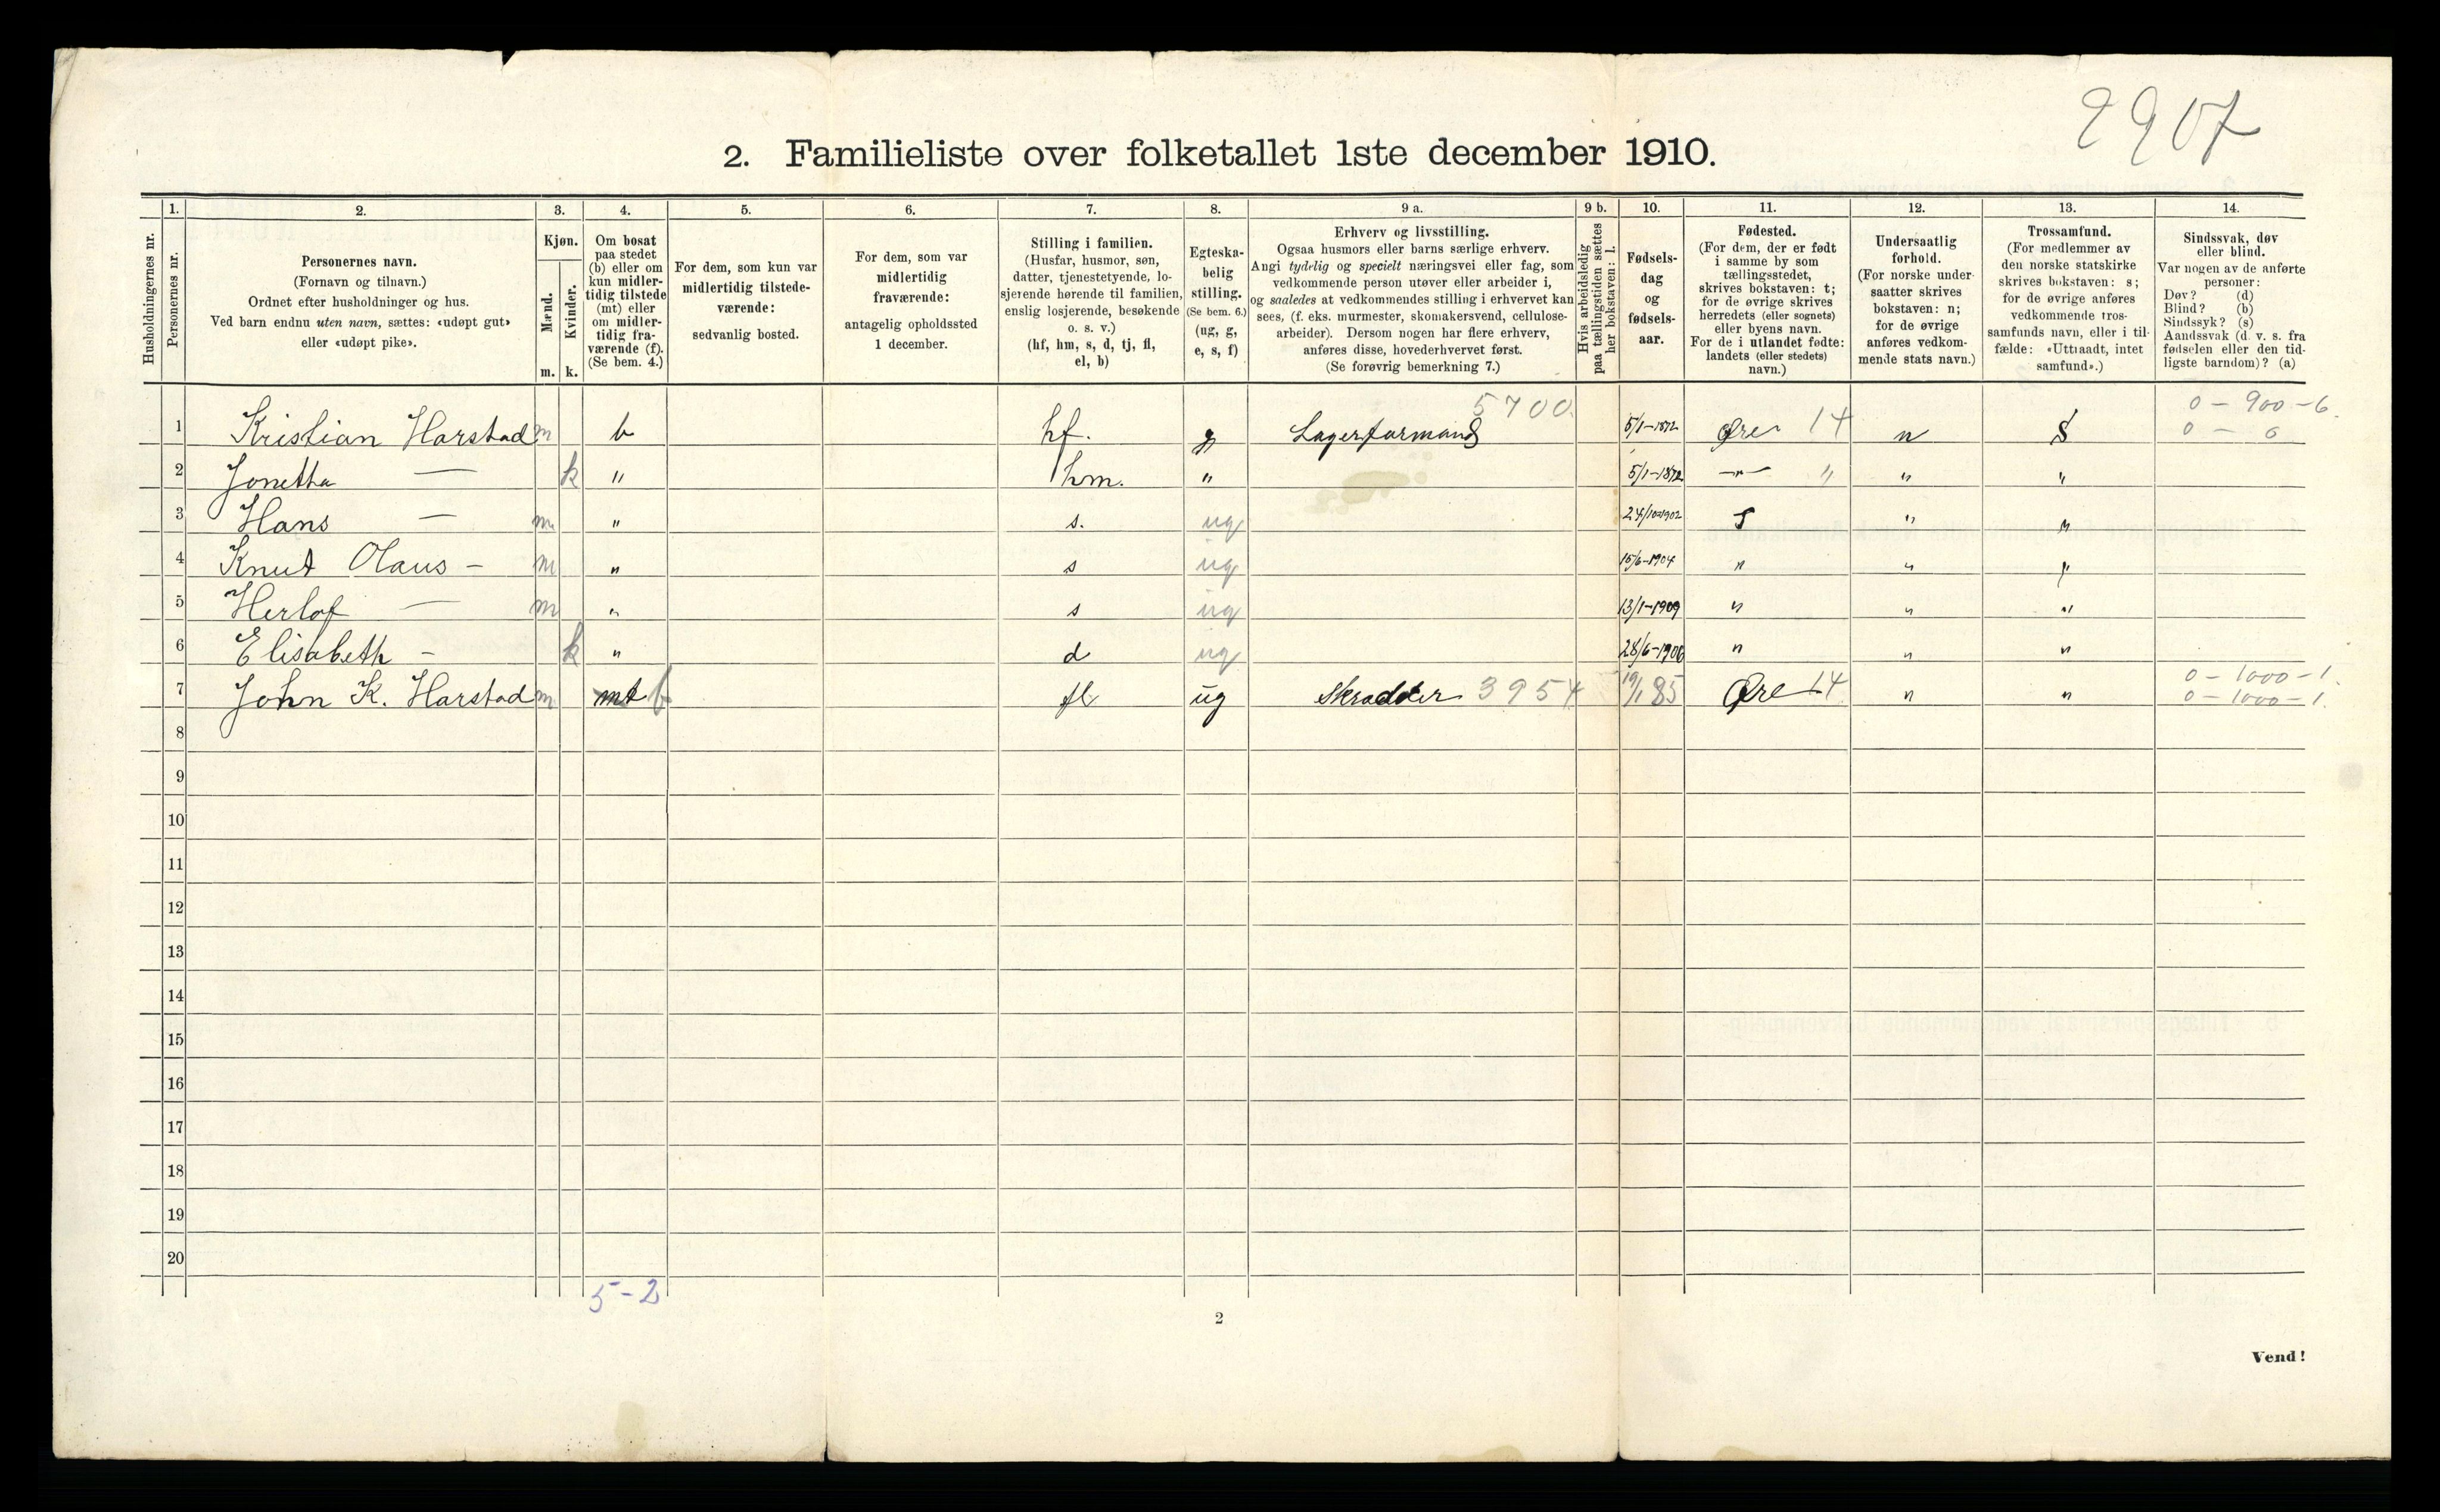 2907
2. Familieliste over folketallet 1ste december 1910.
1. 2. 3. 4. 5. 6. 7. 8. 9 a. 9 b. 10. 11. 12. 13. 14.
Husholdningernes nr.
Personernes nr.
Personernes navn.
(Fornavn og tilnavn.)
Ordnet efter husholdninger og hus.
Ved barn endnu uten navn, sættes: «udøpt gut»
eller «udøpt pike».
Kjøn.
Mænd.
Kvinder.
m. k.
Om bosat
paa stedet
(b) eller om
kun midler-
tidig tilstede
(mt) eller
om midler-
tidig fra-
værende (f).
(Se bem. 4.)
For dem, som kun var
midlertidig tilstede-
værende:
sedvanlig bosted.
For dem, som var
midlertidig
fraværende:
antagelig opholdssted
1 december.
Stilling i familien.
(Husfar, husmor, søn,
datter, tjenestetyende, lo-
sjerende hørende til familien,
enslig losjerende, besøkende
o. s. v.)
(hf, hm, s, d, tj, fl,
el, b)
Egteska-
belig
stilling.
(Se bem. 6.)
(ug, g,
e, s, f)
Erhverv og livsstilling.
Ogsaa husmors eller barns særlige erhverv.
Angi tydelig og specielt næringsvei eller fag, som
vedkommende person utøver eller arbeider i,
og saaledes at vedkommendes stilling i erhvervet kan
sees, (f. eks. murmester, skomakersvend, cellulose-
arbeider). Dersom nogen har flere erhverv,
anføres disse, hovederhvervet først.
(Se forøvrig bemerkning 7.)
Hvis arbeidsledig
paa tællingstiden sættes
her bokstaven: l.
Fødsels-
dag
og
fødsels-
aar.
Fødested.
(For dem, der er født
i samme by som
tællingsstedet,
skrives bokstaven: t;
for de øvrige skrives
herredets (eller sognets)
eller byens navn.
For de i utlandet fødte:
landets (eller stedets)
navn.)
Undersaatlig
forhold.
(For norske under-
saatter skrives
bokstaven: n;
for de øvrige
anføres vedkom-
mende stats navn.)
Trossamfund.
(For medlemmer av
den norske statskirke
skrives bokstaven: s;
for de øvrige anføres
vedkommende tros-
samfunds navn, eller i til-
fælde: «Uttraadt, intet
samfund».)
Sindssvak, døv
eller blind.
Var nogen av de anførte
personer:
Døv? (d)
Blind? (b)
Sindssyk? (s)
Aandssvak (d. v. s. fra
fødselen eller den tid-
ligste barndom)? (a)
5700 0 – 900 – 6.
1 Kristian Harstad m b hf. g Lagerformand 5/1-1872 Øre 14 n S 0 – 6
2 Jonetha — k " hm. " 5/1-1872 —"— " " "
3 Hans — m " s. ug 24/10-1902 " "
4 Knut Olaus – m " s ug 15/6-1904 " " "
5 Herlof — m " s ug 13/1-1909 " " "
6 Elisabeth – k " d ug 28/6-1906 " " "
0 – 1000 – 1.
7 John K. Harstad m mt b fl ug Skrædder 3954 19/1 85 Øre 14 " " 0 – 1000 – 1.
8
9
10
11
12
13
14
15
16
17
18
19
20
5-2
2
Vend!